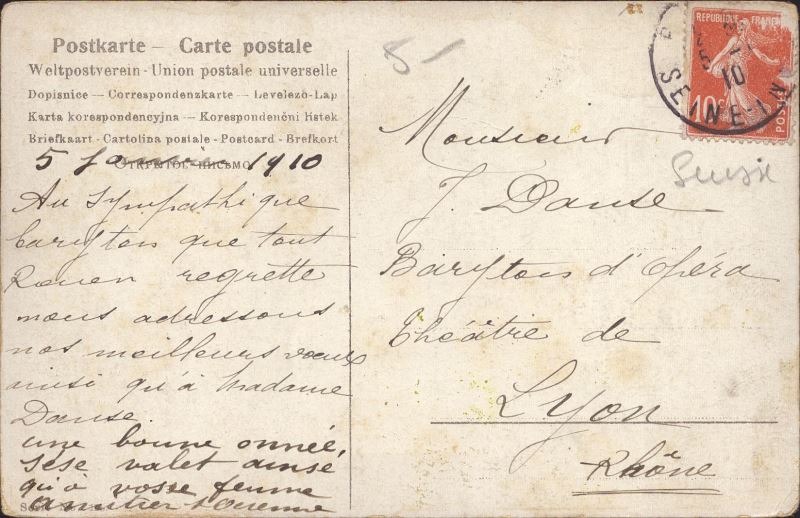 Postkarte — Carte postale
Weltpostverein - Union postale universelle
Dopisnice — Correspondenzkarte — Levelezo-Lap
Karta korespondencyjna — Korespondenčni listek
Briefkaart - Cartolina postale - Postcard - Brefkort
Открытое письмо
5 Janvier 1910
Au sympathique
baryton que tout
Rouen regrette
nous adressons
nos meilleurs voeux
ainsi qu'à Madame
Danse.
une bonne année,
valet
qu'à vosse femme
8-
REPUBLIQUE FRANÇ
10c
POSTES
10
SEINE-IN
Monsieur
J. Danse
Baryton d'Opéra
Théâtre de
Lyon
Rhône